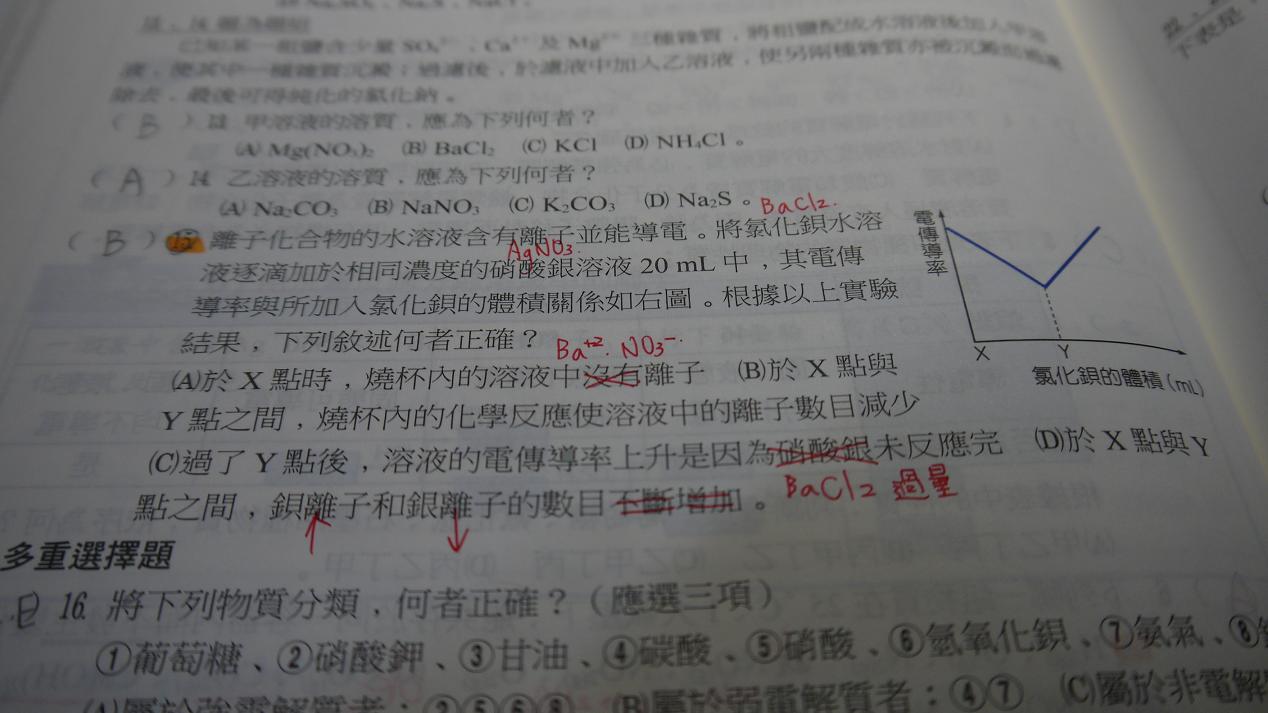 已知某一粗鹽含少量 SO₄²⁻、Ca²⁺ 及 Mg²⁺ 三種雜質，將粗鹽配成水溶液後加入甲溶
液，使其中一種雜質沉澱；過濾後，於濾液中加入乙溶液，使另兩種雜質亦被沉澱而過濾
除去，最後可得純化的氯化鈉。
( B ) 13. 甲溶液的溶質，應為下列何者？
(A) Mg(NO₃)₂ (B) BaCl₂ (C) KCl (D) NH₄Cl。
( A ) 14. 乙溶液的溶質，應為下列何者？
(A) Na₂CO₃ (B) NaNO₃ (C) K₂CO₃ (D) Na₂S。
BaCl2.
( B ) 15. 離子化合物的水溶液含有離子並能導電。將氯化鋇水溶
AgNO3.
液逐滴加於相同濃度的硝酸銀溶液 20 mL 中，其電傳
導率與所加入氯化鋇的體積關係如右圖。根據以上實驗
結果，下列敘述何者正確？
Ba⁺². NO3⁻.
(A)於 X 點時，燒杯內的溶液中沒有離子 (B)於 X 點與
Y 點之間，燒杯內的化學反應使溶液中的離子數目減少
(C)過了 Y 點後，溶液的電傳導率上升是因為硝酸銀未反應完 (D)於 X 點與 Y
BaCl2 過量
點之間，鋇離子和銀離子的數目不斷增加。
↑ ↓
電傳導率
X Y
氯化鋇的體積(mL)
多重選擇題
16. 將下列物質分類，何者正確？（應選三項）
①葡萄糖、②硝酸鉀、③甘油、④碳酸、⑤硝酸、⑥氫氧化鋇、⑦氨氣、⑧
(A)屬於強電解質者：②⑤⑥⑧ (B)屬於弱電解質者：④⑦ (C)屬於非電解
下表是